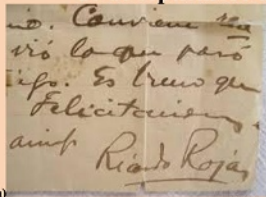 no. Conviene
vió lo que pasó
igo. Es bueno que
Felicitaciones.
Ricardo Rojas